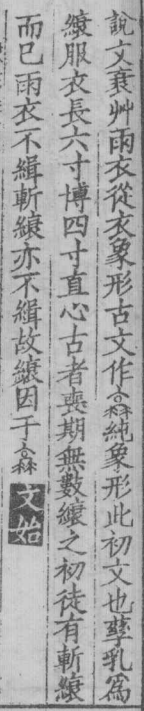 說文衰艸雨衣從衣象形古文作純象形此初文也孳乳爲
縗服衣長六寸博四寸直心古者喪期無數縗之初徒有斬縗
而已雨衣不緝斬縗亦不緝故縗因于文始